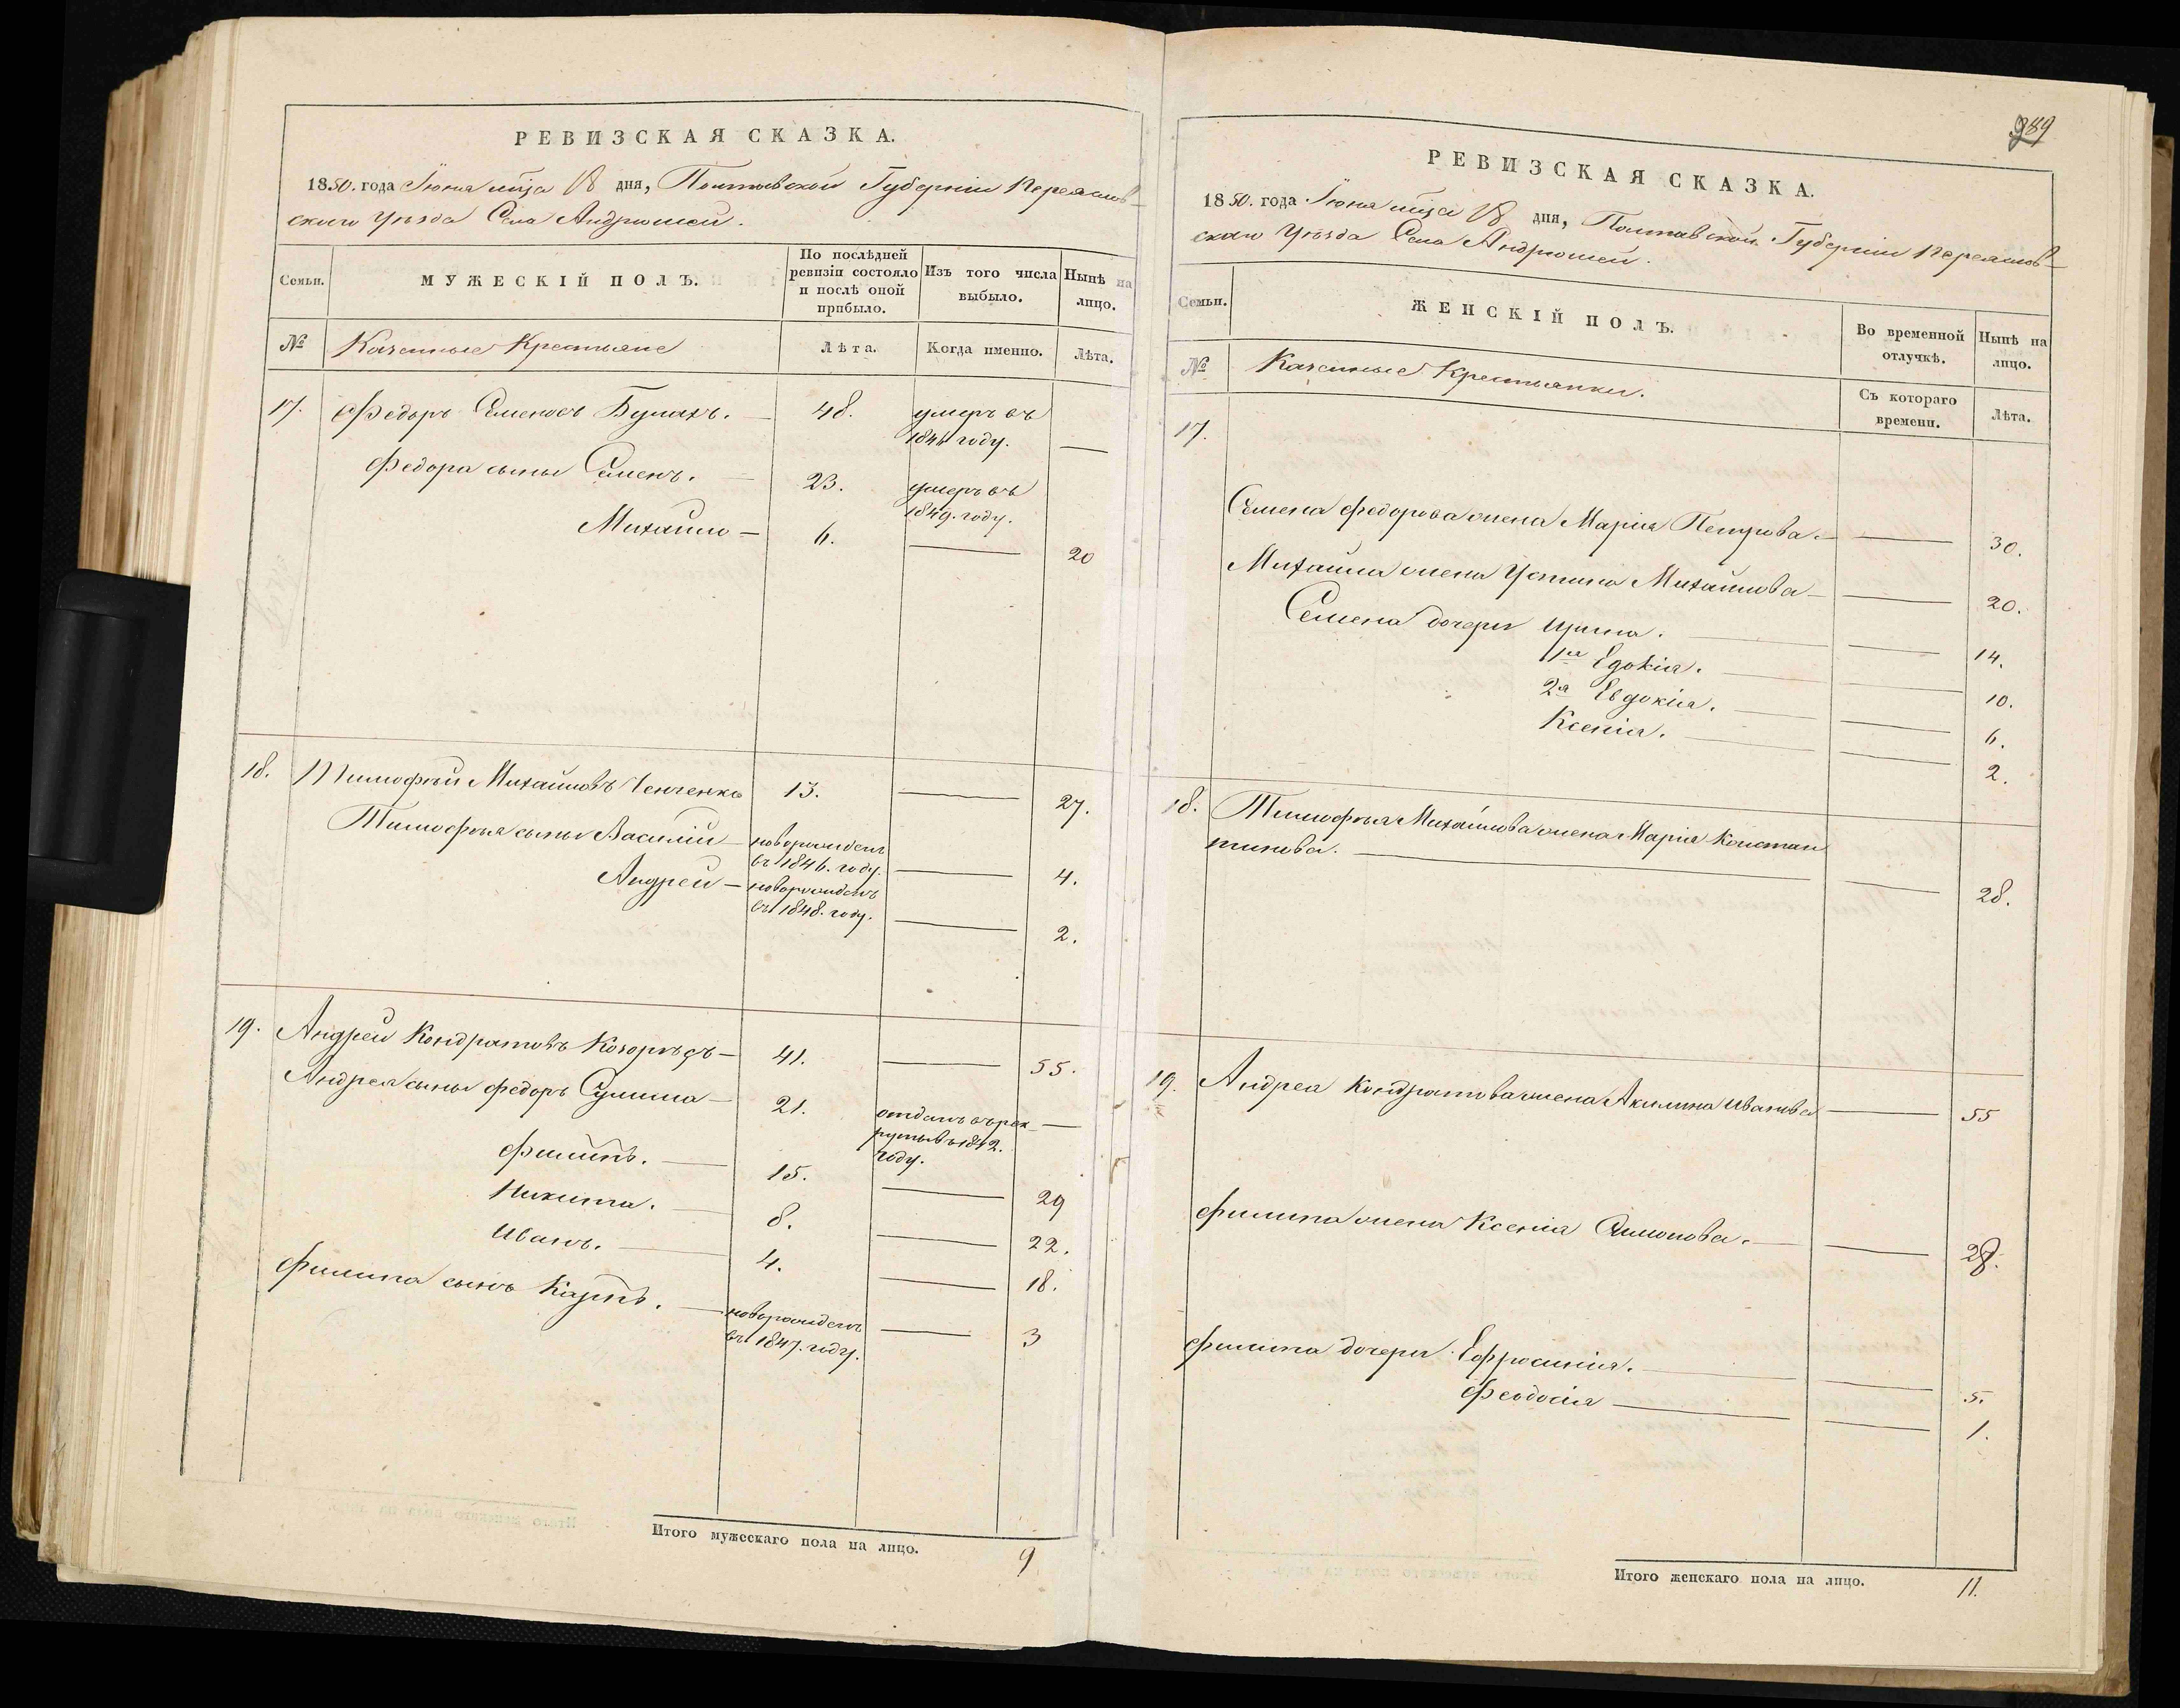 РЕВИЗСКАЯ СКАЗКА.
1850. года Іюня мца 18 дня, Полтавской Губерніи Переяслов-
скаго Уѣзда Села Андрюшей.
Семьи.
МУЖЕСКІЙ ПОЛЪ.
По послѣдней
ревизіи состояло
и послѣ оной
прибыло.
Изъ того числа
выбыло.
Нынѣ на
лицо.
№
Казенные Крестьяне
Лѣта.
Когда именно.
Лѣта.
17. Федоръ Семеновъ Булахъ. — 48. умеръ въ
1846 году. —
Федора сыны Семенъ. — 23. умеръ въ
1849. году.
Михайло — 6. — 20
18. Тимофѣй Михайловъ Ченченко 13. — 27.
Тимофѣя сыны Василій — новорожденъ
въ 1846. году. — 4.
Андрей — новорожденъ
въ 1848. году. — 2.
19. Андрей Кондратовъ — 41. — 55.
Андрея сыны Федоръ Сулима — 21. отданъ въ рек
руты въ 1842. —
году.
Филипъ. — 15. — 29
Никита. — 8. — 22.
Иванъ. — 4. — 18.
Филипа сынъ Карпъ. — новорожденъ
въ 1847. году. — 3
Итого мужескаго пола на лицо. 9
989
РЕВИЗСКАЯ СКАЗКА.
1850. года Іюня мца 18 дня, Полтавской Губерніи Переяслов-
скаго Уѣзда Села Андрюшей.
Семьи.
ЖЕНСКІЙ ПОЛЪ.
Во временной
отлучкѣ.
Нынѣ на
лицо.
№
Казенные Крестьянки.
Съ котораго
времени.
Лѣта.
17.
Семена Федорова жена Марія Петрова. — 30.
Михайла жена Устина Михайлова — 20.
Семена дочери Ирина. — 14.
1я Едокія. — 10.
2я Евдокія. — 6.
Ксенія. — 2.
18. Тимофѣя Михайлова жена Марія Констан
тинова. — 28.
19. Андрея Кондратова жена Акилина Иванова — 55
Филипа жена Ксенія Симонова. — 28.
Филипа дочери Ефросинія. — 5.
Феодосія — 1.
Итого женскаго пола на лицо. 11.